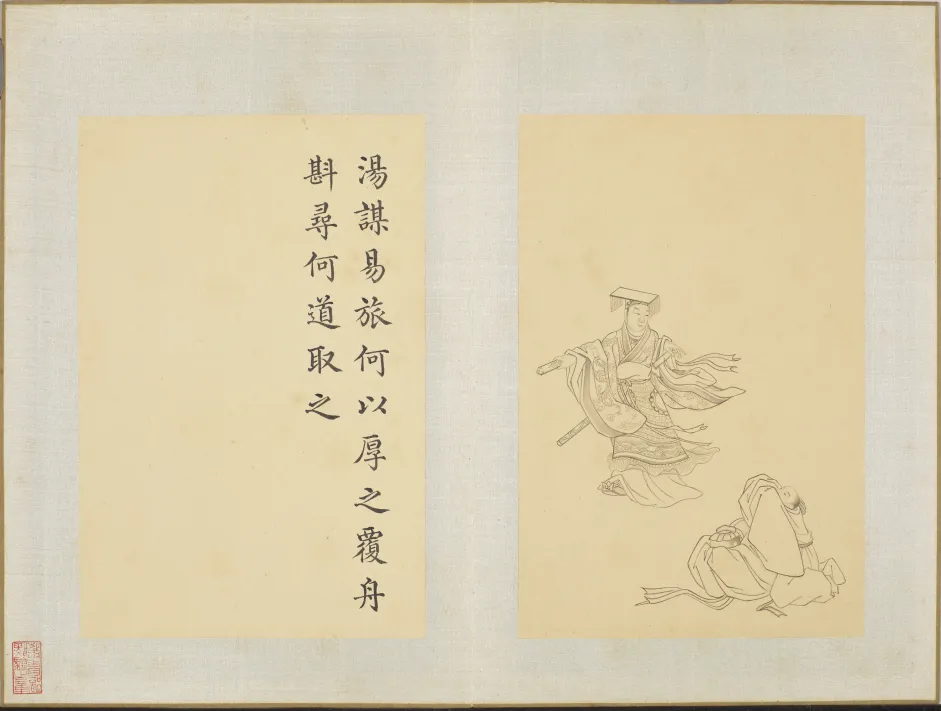 湯謀易旅何以厚之覆舟
斟尋何道取之